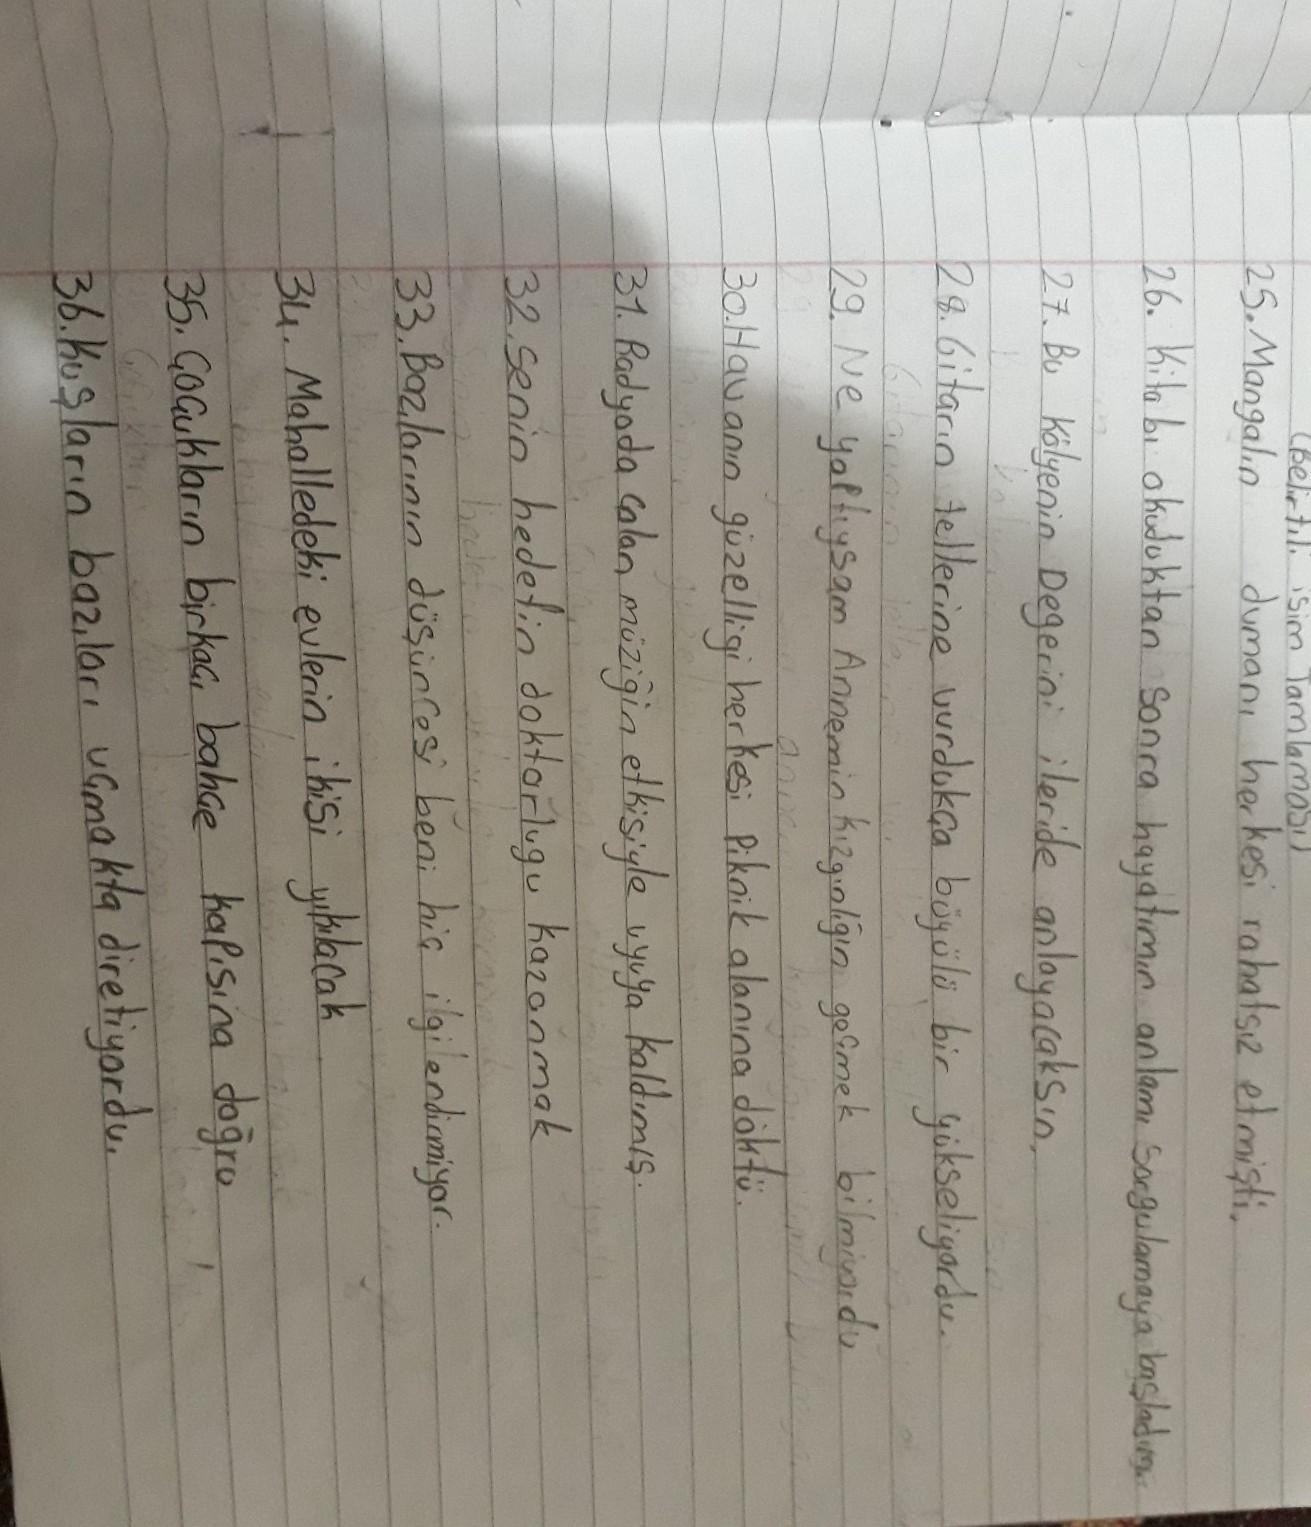 (Belirtili isim Tamlaması)
25. Mangalın dumanı herkesi rahatsız etmişti.
26. Kitabı okuduktan sonra hayatımın anlamı sorgulamaya başladım.
27. Bu kolyenin Degerini ileride anlayacaksın.
28. Gitarın tellerine vurdukça büyülü bir yükseliyordu.
29. Ne yaptıysam Annemin kızgınlığın geçmek bilmiyordu
30. Havanın güzelligi herkesi piknik alanına döktü.
31. Radyoda çalan müziğin etkisiyle uyuya kaldımış.
32. Senin hedefin doktorlugu kazanmak
33. Bazılarının düşüncesi beni hiç ilgilendirmiyor.
34. Mahalledeki evlerin ikisi yıkılacak
35. Çocukların birkaçı bahçe kapısına doğru
36. Kuşların bazıları uçmakta diretiyordu.